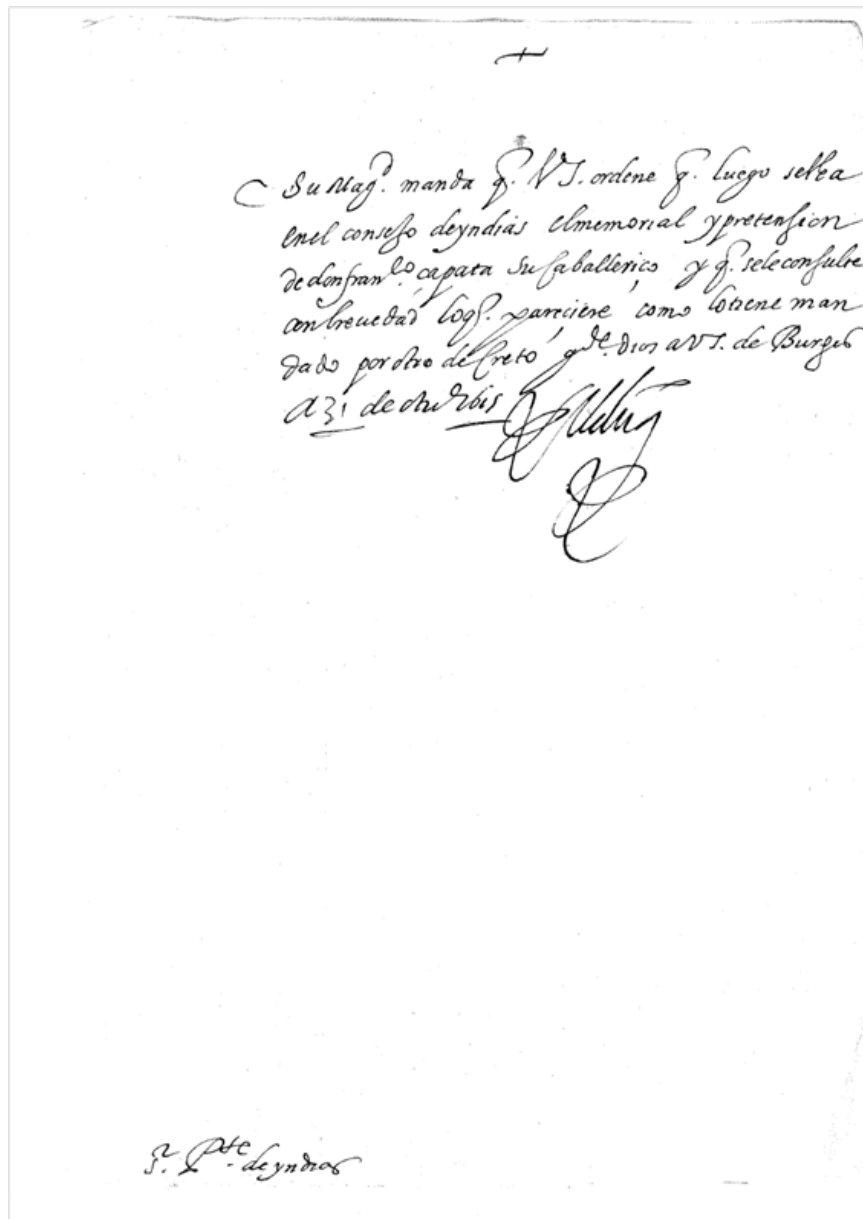 Su Magd. manda q. V S. ordene q. luego se vea
en el consejo de yndias el memorial y pretension
de don franco. çapata su caballeriço y q. se le consulte
con breuedad lo q. pareciere como lo tiene man
dado por otro decreto gde. dios a V S. de Burgos
a 31 de otue 1615
Sr. Pte. de yndias